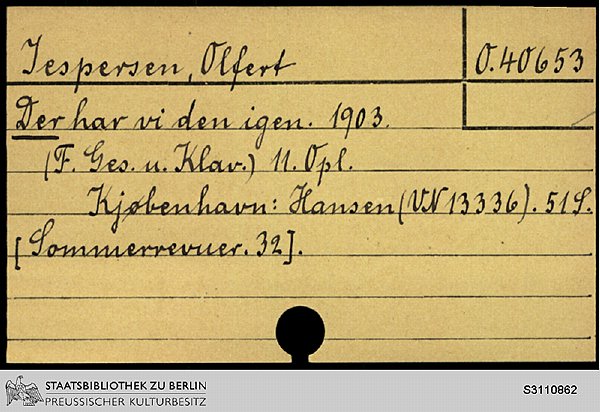 Jespersen, Olfert
O. 40653
Der har vi den igen. 1903.
(F. Ges. u. Klav.) 11. Opl.
Kjøbenhavn: Hansen (VN 13336). 51 S.
[Sommerrevuer. 32].
STAATSBIBLIOTHEK ZU BERLIN
PREUSSISCHER KULTURBESITZ
S3110862